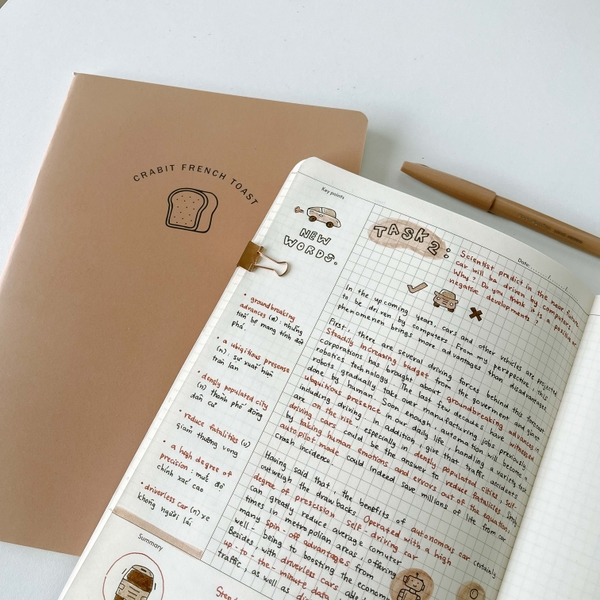 CRABIT FRENCH TOAST
Key points
NEW
WORDS.
• groundbreaking
advances (n) những
đột phá.
• a ubiquitous presence
(n) sự xuất hiện
tràn lan
• deeply populated city
(n) thành phố đông
dân cư
• reduce fatalities (v)
giảm thương vong
• a high degree of
precision : mức độ
chính xác cao
• driverless car (n) xe
không người lái
Summary
Date:
TASK 2:
Scientist predict in the near future
car will be driven by computers,
Why? Do you think it is a positive or
negative developments?
In the upcoming years, cars and other vehicles are projected
to be driven by computers. From my perspective, this
phenomenon brings more advantages than disadvantages.
First, there are several driving forces behind this
Steadily increasing budget from the government and giant
corporations has brought about groundbreaking advances in
robotics technology. The last few decades have witnessed
robots gradually take over manufacturing jobs previously
done by human. Soon enough, automation will become a
ubiquitous presence in our daily life, handling a variety
including driving. In addition, give that traffic accidents
are on the rise, especially in deeply populated cities, self-
driving cars could be the answer to reduce fatalities
by taking human emotions and errors out of the equation,
autopilot mode could indeed save millions of life from car
crash incidence.
Having said that, the benefits of autonomous car certainly
outweigh the drawbacks. Operated with a high
degree of prescision, self-driving car
can greatly reduce average comuter
times in metropolian areas, offering
many spin-off advantages from
well-being to boosting the economy
Besides, with driverless cars able
up-to-the-minute data
traffic, as well as